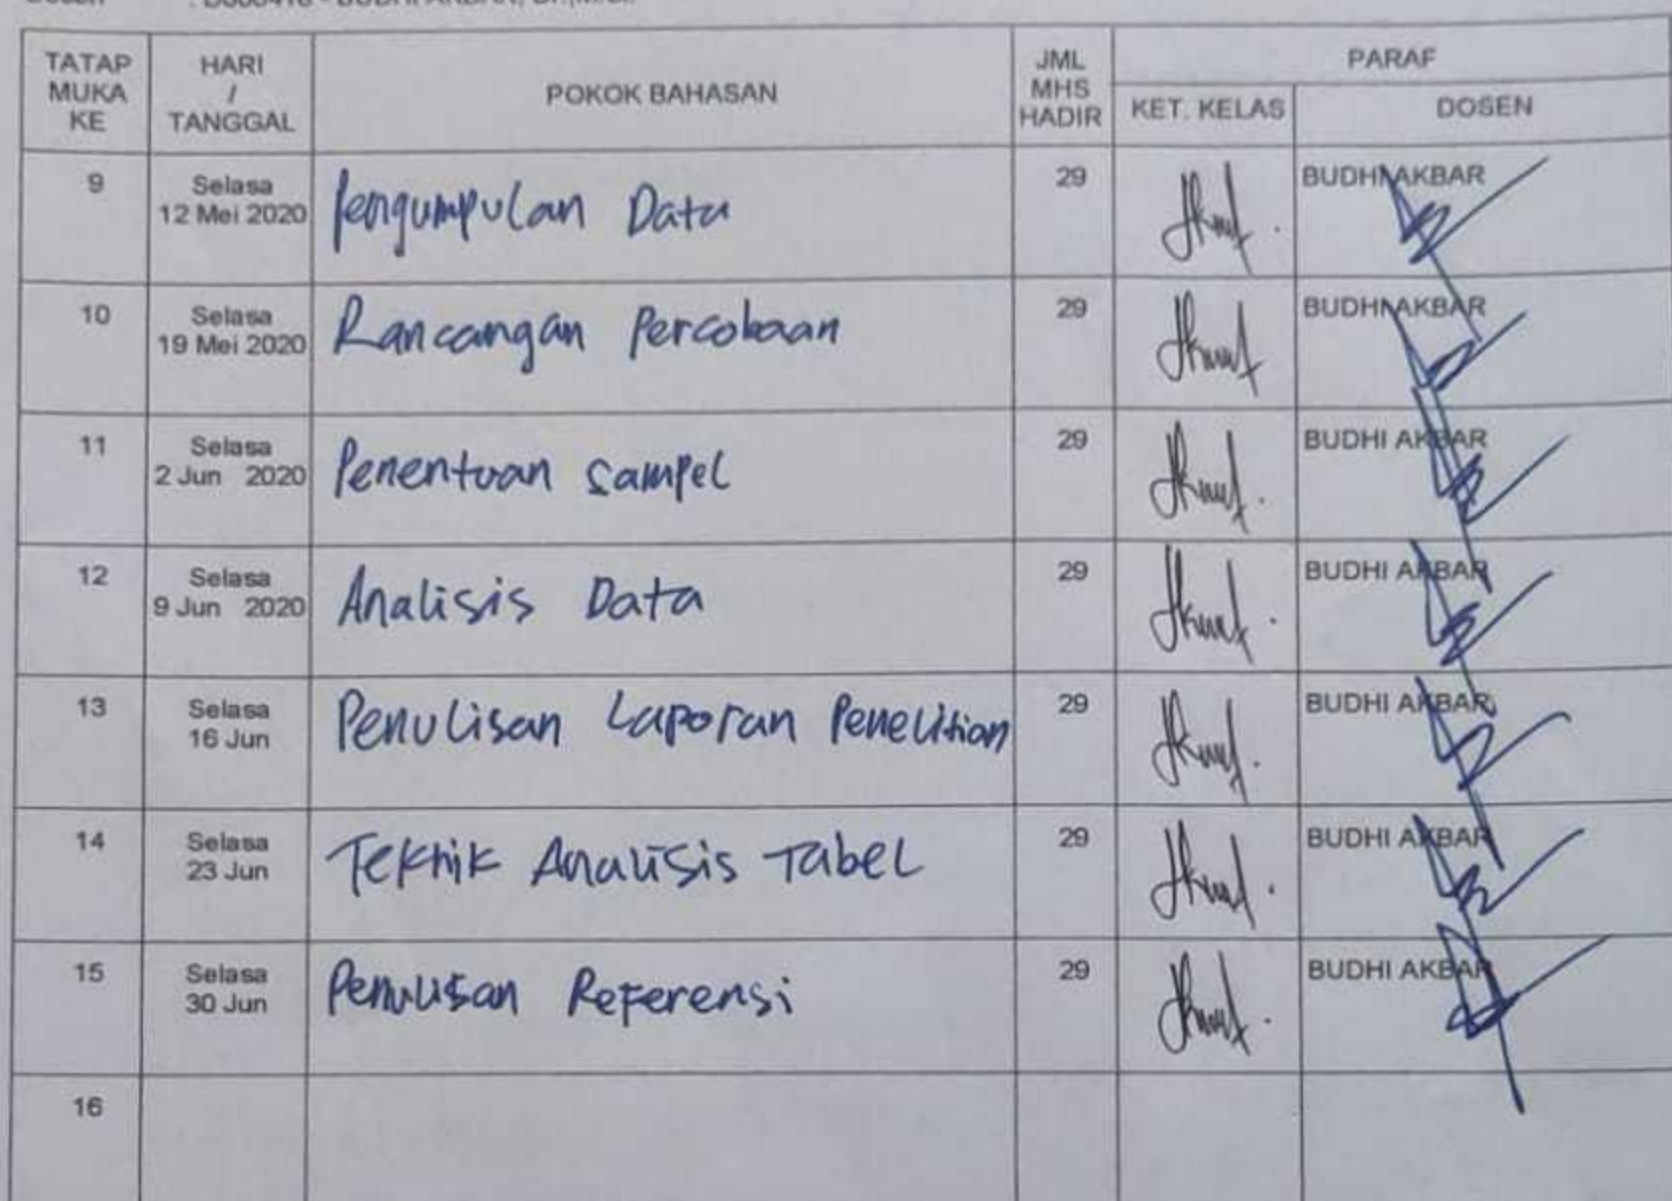 TATAP MUKA KE HARI / TANGGAL POKOK BAHASAN JML MHS HADIR PARAF
KET. KELAS DOSEN
9 Selasa 12 Mei 2020 Pengumpulan Data 29 BUDHI AKBAR
10 Selasa 19 Mei 2020 Rancangan Percobaan 29 BUDHI AKBAR
11 Selasa 2 Jun 2020 Penentuan Sampel 29 BUDHI AKBAR
12 Selasa 9 Jun 2020 Analisis Data 29 BUDHI AKBAR
13 Selasa 16 Jun Penulisan Laporan Penelitian 29 BUDHI AKBAR
14 Selasa 23 Jun Teknik Analisis Tabel 29 BUDHI AKBAR
15 Selasa 30 Jun Penulisan Referensi 29 BUDHI AKBAR
16